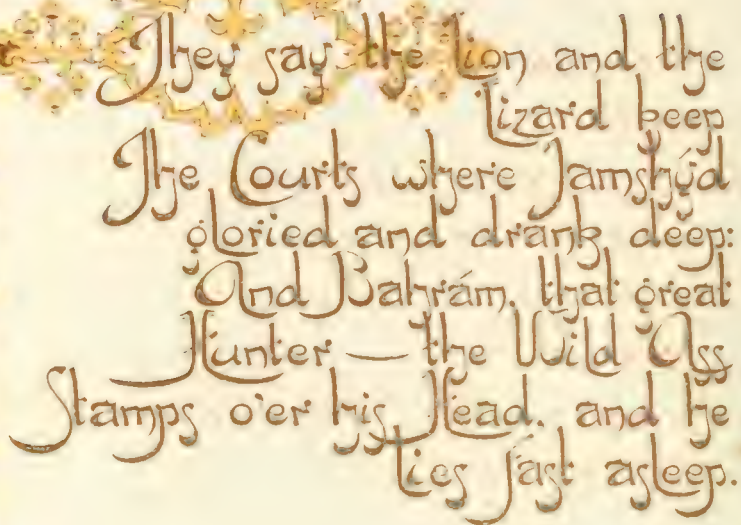 They say the Lion and the
Lizard keep
The Courts where Jamshýd
gloried and drank deep:
And Bahrám, that great
Hunter — the Wild Ass
Stamps o'er his Head, and he
Lies fast asleep.